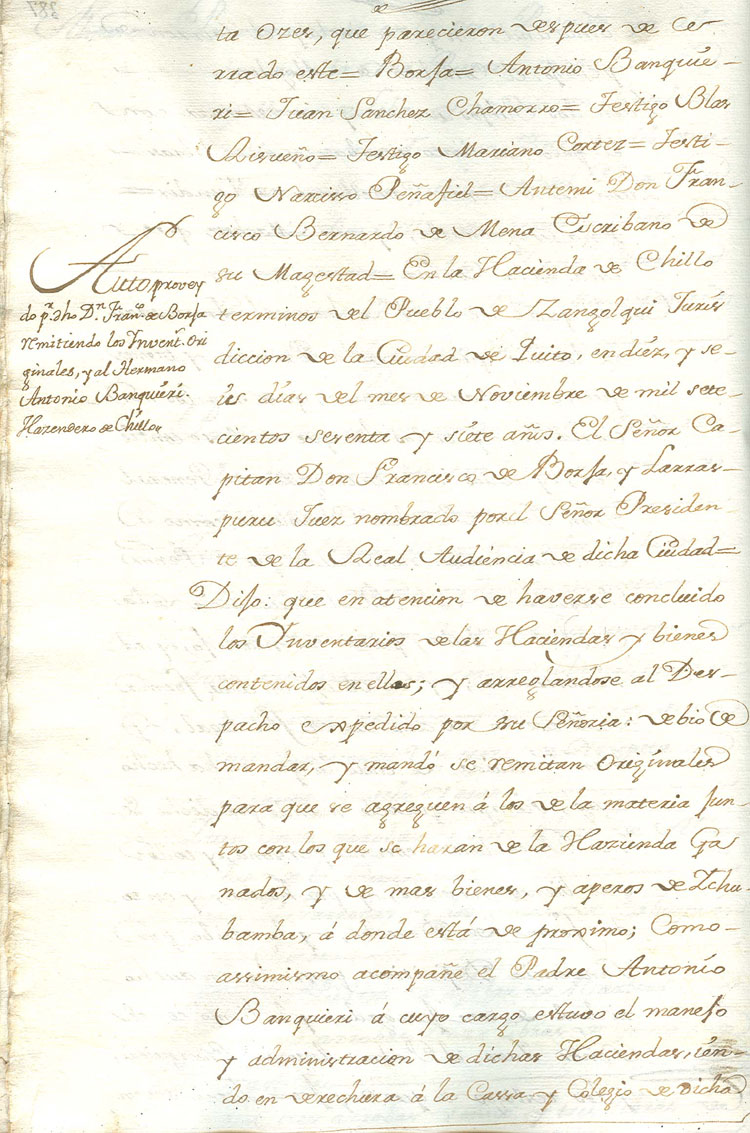 ta Ozes, que parecieron despues de Cer
rrado este= Borja= Antonio Banquie-
ri= Juan Sanchez Chamorro= Testigo Blas
Risueño= Testigo Mariano Cortez= Testi-
go Narciso Peñafiel= Antemi Don Fran-
cisco Bernardo de Mena Escribano de
su Magestad= En la Hacienda de Chillo
terminos del Pueblo de Zangolqui Juris
diccion de la Ciudad de Quito, en diéz, y se-
is dias del mes de Noviembre de mil sete-
cientos sesenta y siete añs. El Señor Ca-
pitan Don Francisco de Borja, y Larras-
puru Juez nombrado por el Señor Presiden-
te de la Real Audiencia de dicha Ciudad=
Dijo: que en atencion de haverse concluido
los Inventarios de las Haciendas y bienes
contenidos en ellas; y arreglandose al Des-
pacho expedido por su Señoria: debio de
mandar, y mandó se remitan Originales
para que se agreguen á los de la materia jun-
tos con los que se haran de la Hazienda Ga
nados, y de mas bienes, y aperos de Ichu-
bamba, á donde está de proximo; Como-
assimismo acompañe el Padre Antonio
Banquieri á cuyo cargo estuvo el manejo
y administracion de dichas Haciendas, ien-
do en derechura á la Cassa y Colegio de dicha
Auto provey
do pr. dho Dn. Franco. de Borja
remitiendo los Invent. Ori
ginales, y al Hermano
Antonio Banquieri.
Hazendero de Chillos